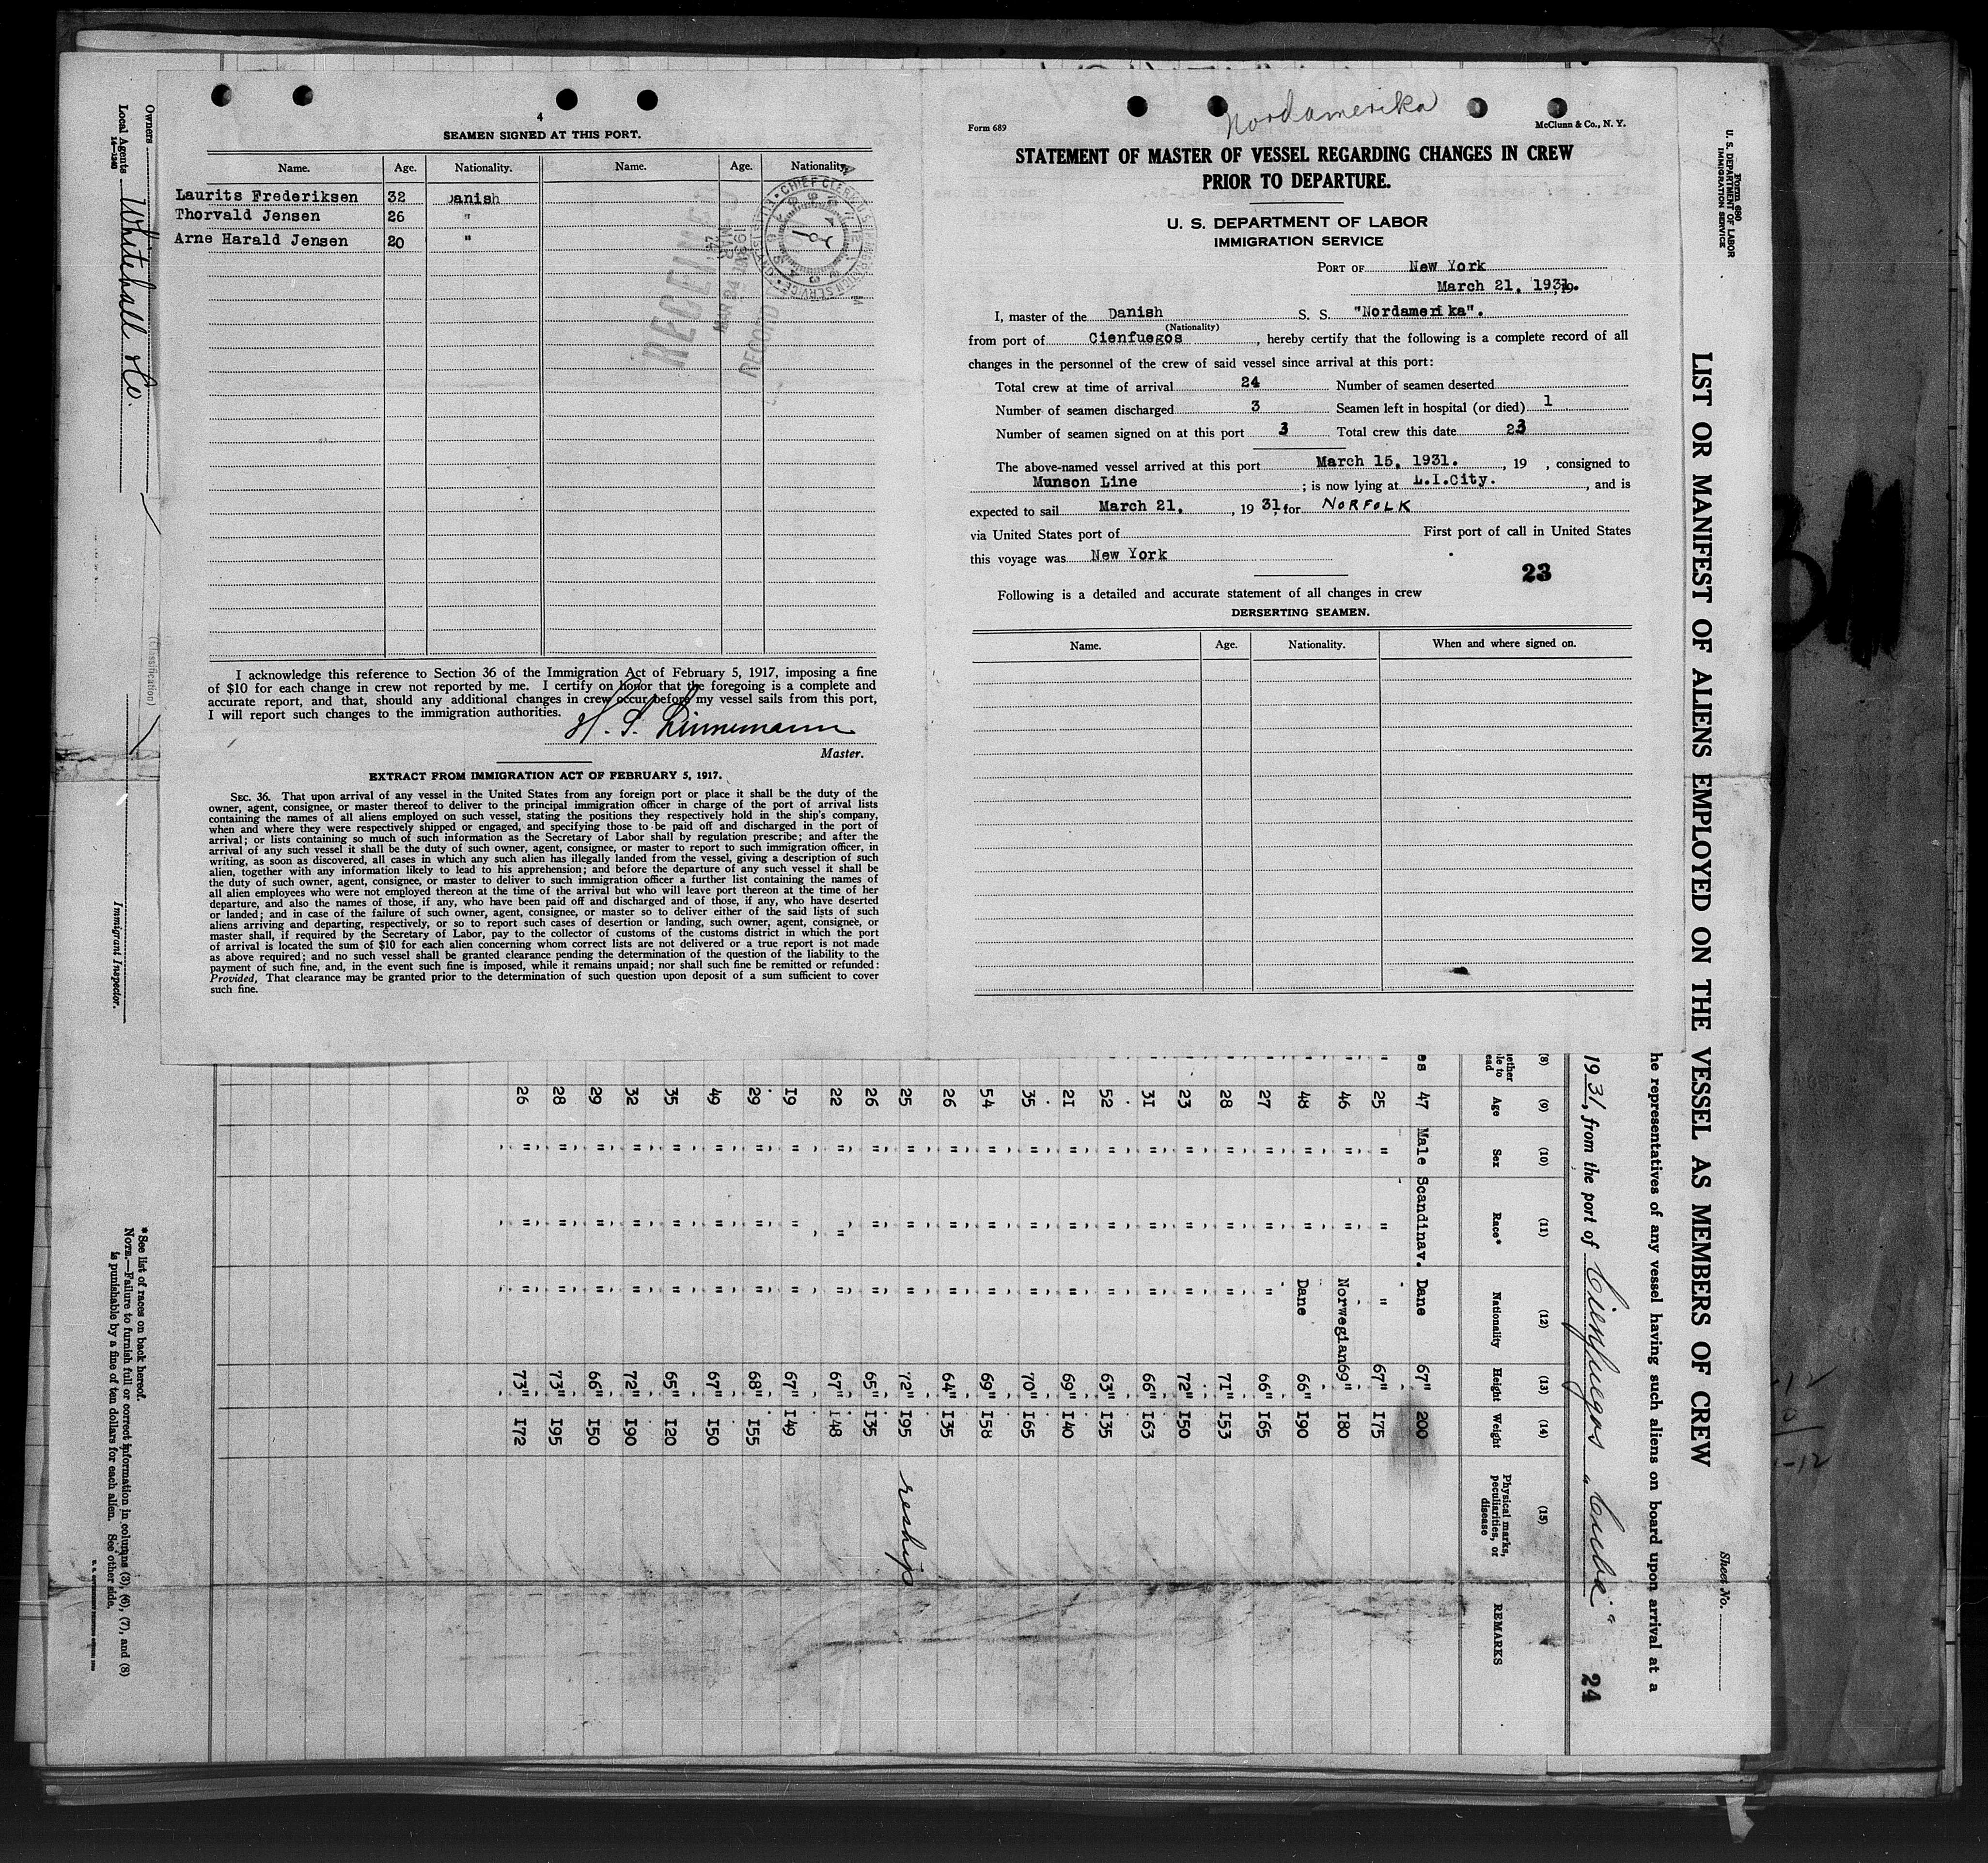 4
SEAMEN SIGNED AT THIS PORT.
Name. Age. Nationality. Name. Age. Nationality
Laurits Frederiksen 32 Danish
Thorvald Jensen 26 "
Arne Harald Jensen 20 "
RECEIVED
RECORD
I acknowledge this reference to Section 36 of the Immigration Act of February 5, 1917, imposing a fine
of $10 for each change in crew not reported by me. I certify on honor that the foregoing is a complete and
accurate report, and that, should any additional changes in crew occur before my vessel sails from this port,
I will report such changes to the immigration authorities.
H. S. Linnemann
Master.
EXTRACT FROM IMMIGRATION ACT OF FEBRUARY 5, 1917.
SEC. 36. That upon arrival of any vessel in the United States from any foreign port or place it shall be the duty of the
owner, agent, consignee, or master thereof to deliver to the principal immigration officer in charge of the port of arrival lists
containing the names of all aliens employed on such vessel, stating the positions they respectively hold in the ship's company,
when and where they were respectively shipped or engaged, and specifying those to be paid off and discharged in the port of
arrival; or lists containing so much of such information as the Secretary of Labor shall by regulation prescribe; and after the
arrival of any such vessel it shall be the duty of such owner, agent, consignee, or master to report to such immigration officer, in
writing, as soon as discovered, all cases in which any such alien has illegally landed from the vessel, giving a description of such
alien, together with any information likely to lead to his apprehension; and before the departure of any such vessel it shall be
the duty of such owner, agent, consignee, or master to deliver to such immigration officer a further list containing the names of
all alien employees who were not employed thereon at the time of the arrival but who will leave port thereon at the time of her
departure, and also the names of those, if any, who have been paid off and discharged and of those, if any, who have deserted
or landed; and in case of the failure of such owner, agent, consignee, or master so to deliver either of the said lists of such
aliens arriving and departing, respectively, or so to report such cases of desertion or landing, such owner, agent, consignee, or
master shall, if required by the Secretary of Labor, pay to the collector of customs of the customs district in which the port
of arrival is located the sum of $10 for each alien concerning whom correct lists are not delivered or a true report is not made
as above required; and no such vessel shall be granted clearance pending the determination of the question of the liability to the
payment of such fine, and, in the event such fine is imposed, while it remains unpaid; nor shall such fine be remitted or refunded:
Provided, That clearance may be granted prior to the determination of such question upon deposit of a sum sufficient to cover
such fine.
Nordamerika
Form 689 McClunn & Co., N. Y.
STATEMENT OF MASTER OF VESSEL REGARDING CHANGES IN CREW
PRIOR TO DEPARTURE.
U. S. DEPARTMENT OF LABOR
IMMIGRATION SERVICE
PORT OF New York
March 21, 1931.
I, master of the Danish S. S. "Nordamerika".
(Nationality)
from port of Cienfuegos, hereby certify that the following is a complete record of all
changes in the personnel of the crew of said vessel since arrival at this port:
Total crew at time of arrival 24 Number of seamen deserted
Number of seamen discharged 3 Seamen left in hospital (or died) 1
Number of seamen signed on at this port 3 Total crew this date 23
The above-named vessel arrived at this port March 15, 1931. , 19 , consigned to
Munson Line ; is now lying at L.I.City. , and is
expected to sail March 21, , 19 31, for NORFOLK
via United States port of First port of call in United States
this voyage was New York
23
Following is a detailed and accurate statement of all changes in crew
DERSERTING SEAMEN.
Name. Age. Nationality. When and where signed on.
Form 680
U. S. DEPARTMENT OF LABOR
IMMIGRATION SERVICE
Sheet No.
LIST OR MANIFEST OF ALIENS EMPLOYED ON THE VESSEL AS MEMBERS OF CREW
he representatives of any vessel having such aliens on board upon arrival at a
1931, from the port of Cienfuegos, "Cuba" 24
(8) (9) (10) (11) (12) (13) (14) (15)
Age Sex Race* Nationality Height Weight Physical marks, peculiarities, or disease REMARKS
es 47 Male Scandinav. Dane 67" 200
" 25 " " " 67" 175
46 " " Norwegian 69" 180
48 " " Dane 66" 190
27 " " " 66" 165
28 " " " 71" 153
23 " " " 72" 150
31 " " " 66" 163
52 " " " 63" 135
21 " " " 69" 140
35 " " " 70" 165
54 " " " 69" 158
26 " " " 64" 135
25 " " " 72" 195 reship
26 " " " 65" 135
22 " " " 67" 148
19 " " " 67" 149
29 " " " 68" 155
49 " " " 67" 150
35 " " " 65" 120
32 " " " 72" 190
29 " " " 66" 150
28 " " " 73" 195
26 " " " 73" 172
Owners
Local Agents Whitehall & Co.
14-1240
(Classification)
Immigrant Inspector.
* See list of races on back hereof.
NOTE.—Failure to furnish full or correct information in columns (3), (6), (7), and (8)
is punishable by a fine of ten dollars for each alien. See other side.